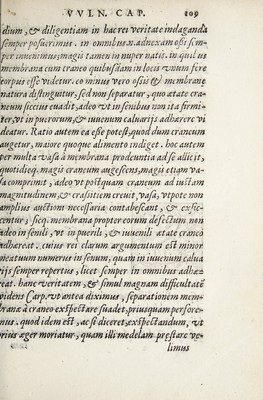 VVLN. CAP. 109
dium, & diligentiam in hac rei veritate indaganda
semper posuerimus. in omnibus .n. adnexam ossi sem-
per inuenimus, magis tamen in nuper natis. in quibus
membrana cum craneo quibusdam in locis vnum fere
corpus esse videtur. eo minus vero ossis & membranæ
natura distinguitur, sed non separatur, quo ætate cra-
neum siccius euadit, adeo vt in senibus non ita firmi-
ter, vt in puerorum, & iuuenum caluarijs adhærere vi
deatur. Ratio autem ea esse potest, quod dum craneum
augetur, maiore quoque alimento indiget. hoc autem
per multa vasa à membrana prodeuntia ad se allicit,
quotidieq. magis craneum augescens, magis etiam va-
sa comprimit, adeo vt postquam craneum ad iustam
magnitudinem, & crassitiem creuit, vasa, vtpote non
amplius auctioni necessaria contabescant, & exsic-
centur; sicq. membrana propter eorum defectum non
adeo in senili, vt in puerili, & iuuenili ætate craneo
adhæreat. cuius rei clarum argumentum est minor
meatuum numerus in senum, quam in iuuenum calua
rijs semper repertus, licet semper in omnibus adhæ-
reat. hanc veritatem, & simul magnam difficultatē
videns Carp. vt antea diximus, separationem mem-
branæ à craneo exspectare suadet, priusquam perfore-
mus. quod idem est, ac si diceret, exspectandum, vt
prius æger moriatur, quam illi medelam præstare ve-
limus